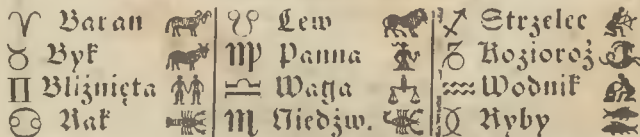 ♈ Baran
♉ Byk
♊ Bliźnięta
♋ Rak
♌ Lew
♍ Panna
♎ Waga
♏ Niedźw.
♐ Strzelec
♑ Kozioroż
♒ Wodnik
♓ Ryby